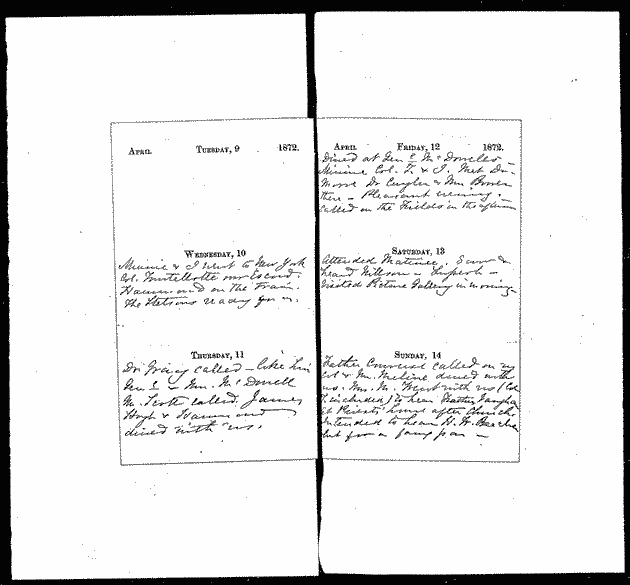 APRIL TUESDAY, 9 1872.
WEDNESDAY, 10
Minnie & I went to New York
Col. our Escort.
Hammond on the Train.
The Stetsons ready for us.
THURSDAY, 11
Dr Gray called – like him
Gen & Mrs. McDowell
M. Scott called James
Hoyt & Hammond
dined with us.
APRIL FRIDAY, 12 1872.
Dined at Gen McDowells –
Minnie Col. T. & I. Met Dr.
Moore Dr & Mrs
there – Pleasant evening.
Called on the Fields in the
SATURDAY, 13
Attended Matinee. Saw &
heard Nillson – Superb –
Visited Picture Gallery in morning
SUNDAY, 14
Father called on us
Col & Mr. dined with
us. Mrs. M. Went with us (Col
T. included) to hear Father
at Priests home after Church.
Intended to hear H. W. Beecher
but for a –